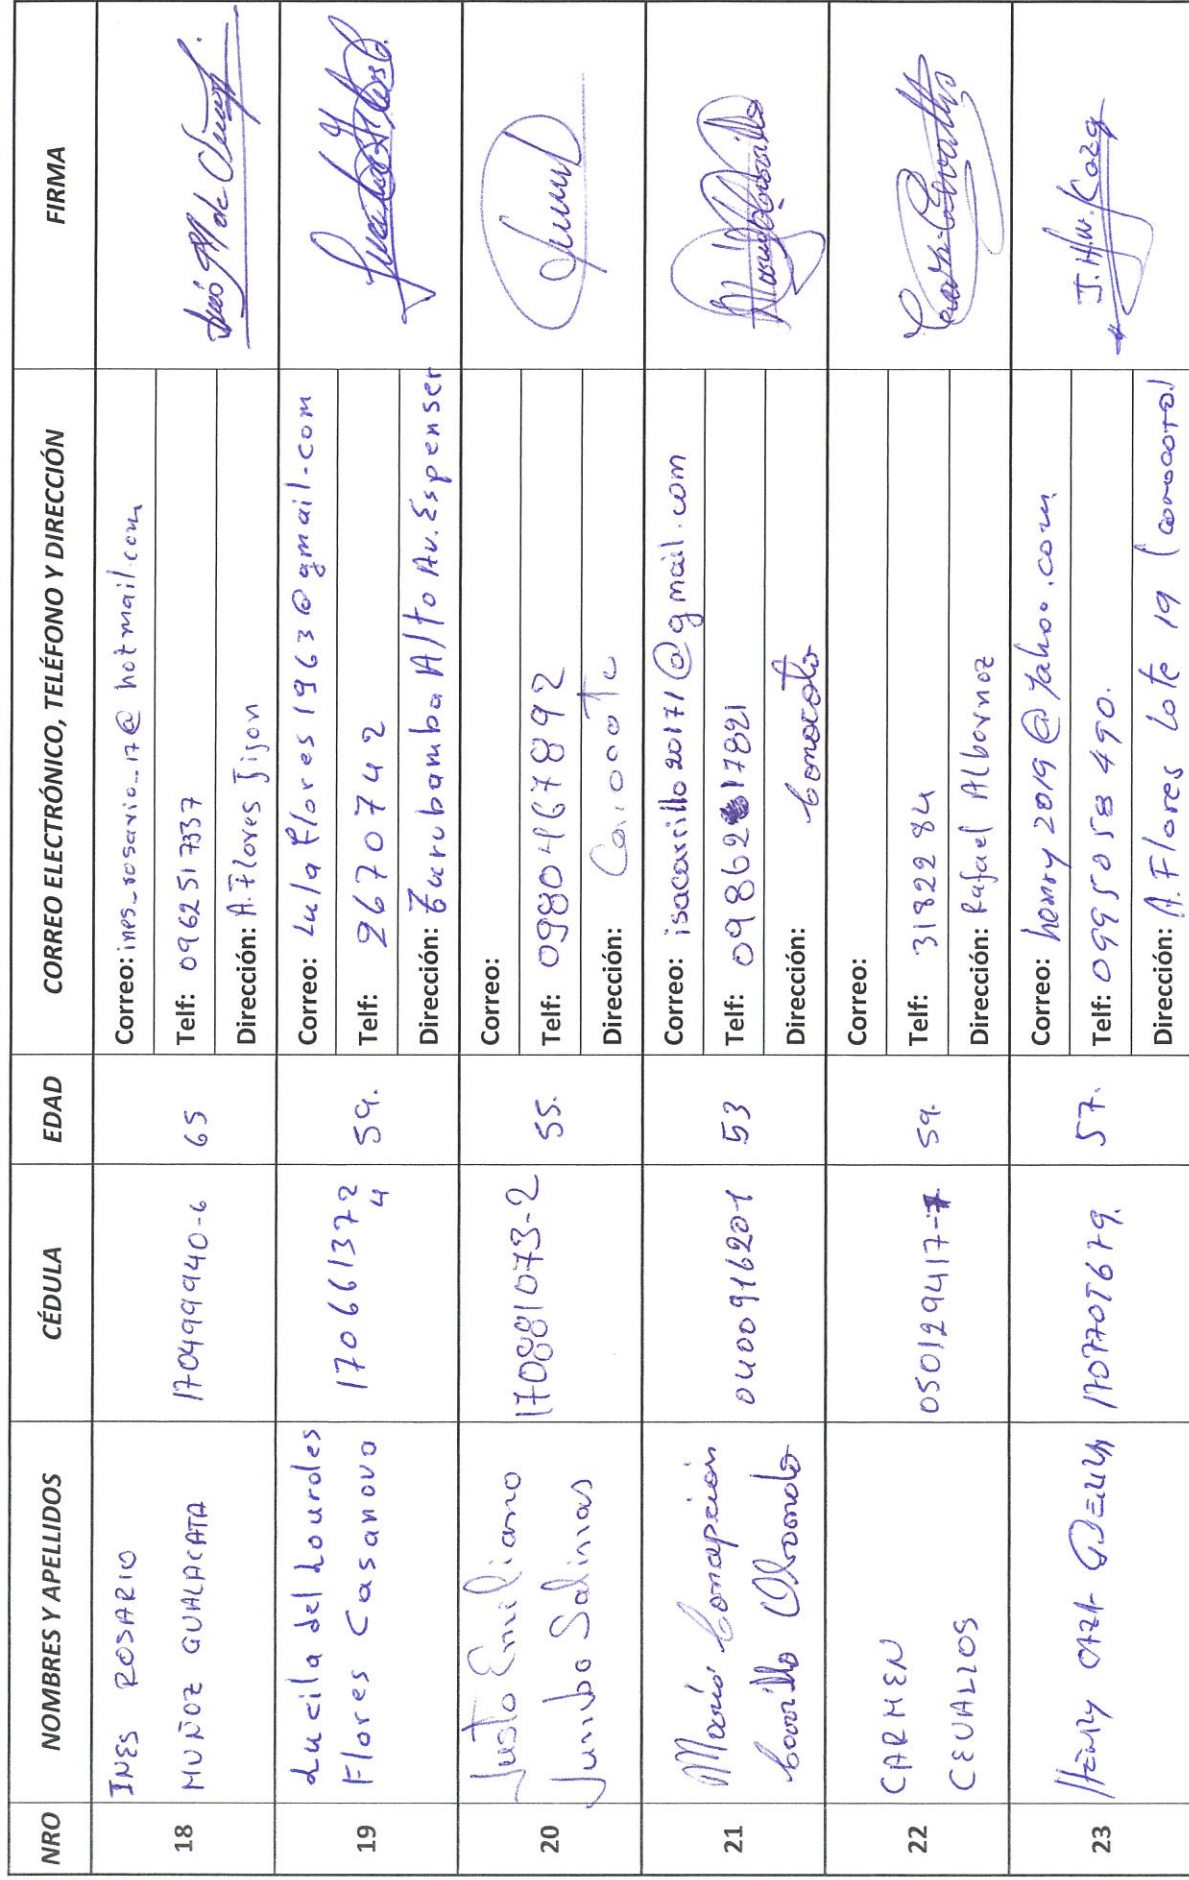 NRO NOMBRES Y APELLIDOS CÉDULA EDAD CORREO ELECTRÓNICO, TELÉFONO Y DIRECCIÓN FIRMA
18
INES ROSARIO
MUÑOZ GUALACATA
170499940-6
65
Correo: ines_rosario_17@hotmail.com
Telf: 0962517337
Dirección: A. Flores Jijon
19
Lucila del Lourdes
Flores Casanova
170661372
4
59.
Correo: Lulaflores1963@gmail.com
Telf: 2670742
Dirección: Alto Av. Espenser
20
Justo Emiliano
Jumbo Salinas
170881073-2
55.
Correo:
Telf: 0980467892
Dirección:
21
María Concepción
Carrillo
0400916201
53
Correo: isacarrillo20171@gmail.com
Telf:
Dirección: Conocoto
22
CARMEN
CEVALLOS
050129417-7
59.
Correo:
Telf: 3182284
Dirección: Rafael Albornoz
23
Henry
57.
Correo: henry2019@yahoo.com
Telf: 0995058490.
Dirección: A. Flores Lote 19
J.H.W.